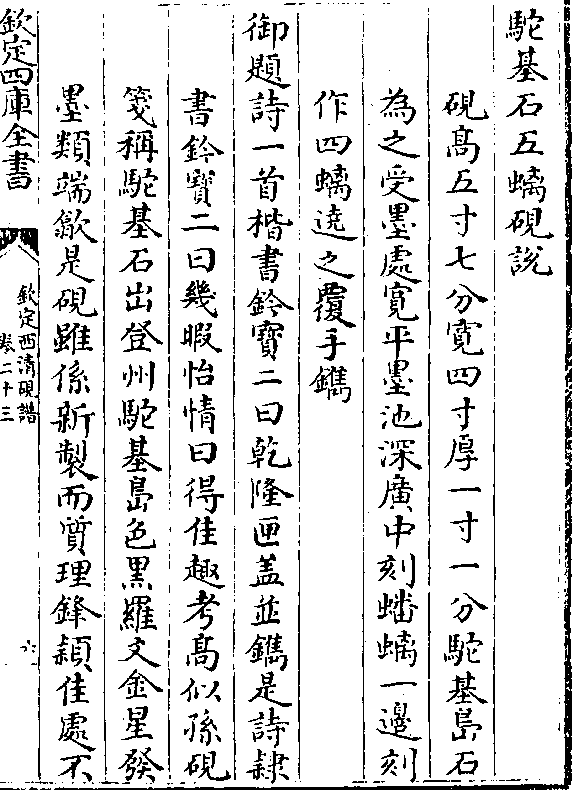 駝基石五螭硯說
硯高五寸七分寛四寸厚一寸一分駝基島石
為之受墨處寛平墨池深廣中刻蟠螭一邊刻
作四螭遶之覆手鐫
御題詩一首楷書鈐寳二曰乾隆匣盖並鐫是詩隸
書鈐寳二曰幾暇怡情曰得佳趣考高似孫硯
箋稱駝基石出登州駝基島色黒羅文金星發
墨類端歙是硯雖係新製而質理鋒頴佳處不
欽定四庫全書
欽定西清硯譜
卷二十三
六